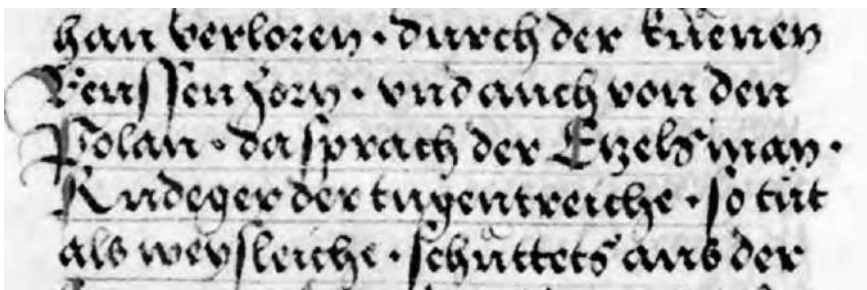 han verloren · durch der kuͤenen
Reussen zorn · vnd auch von den
Polan · da sprach der Etzels man ·
Rudeger der tugentreiche · so tuͤt
als weysleiche · schuͤttets aus der